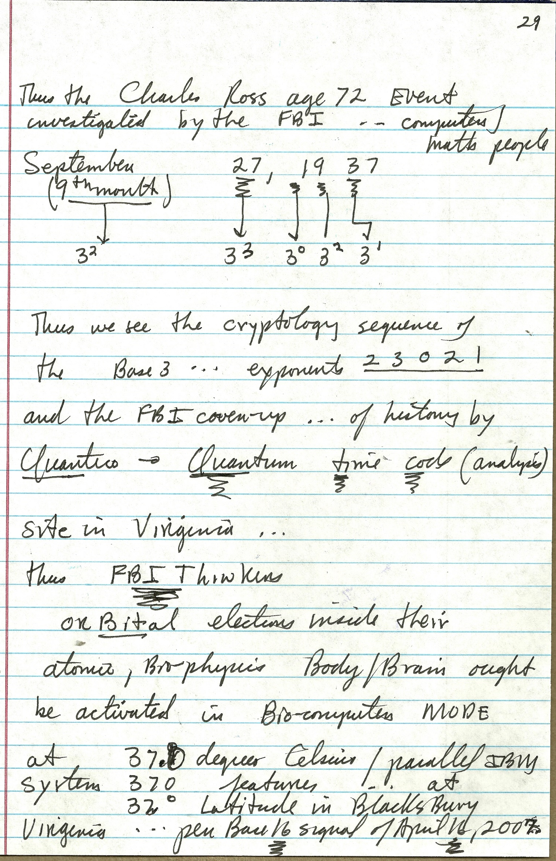 29
Thus the Charles Ross age 72 Event
investigated by the FBI -- computers/
math people
September 27, 19 37
(9th month)
3² 3³ 3⁰ 3² 3¹
Thus we see the cryptology sequence of
the Base 3 ... exponents 2 3 0 2 1
and the FBI cover-up ... of history by
Quantico → Quantum time code (analysis)
site in Virginia ...
thus FBI Thinkers
or Bital elections inside their
atomic, Bio-physics Body/Brain ought
be activated in Bio-computer MODE
at 37.0 degrees Celsius / parallel IBM
System 370 features ... at
37° Latitude in Blacksburg
Virginia ... per Base 16 signal of April 16, 2007